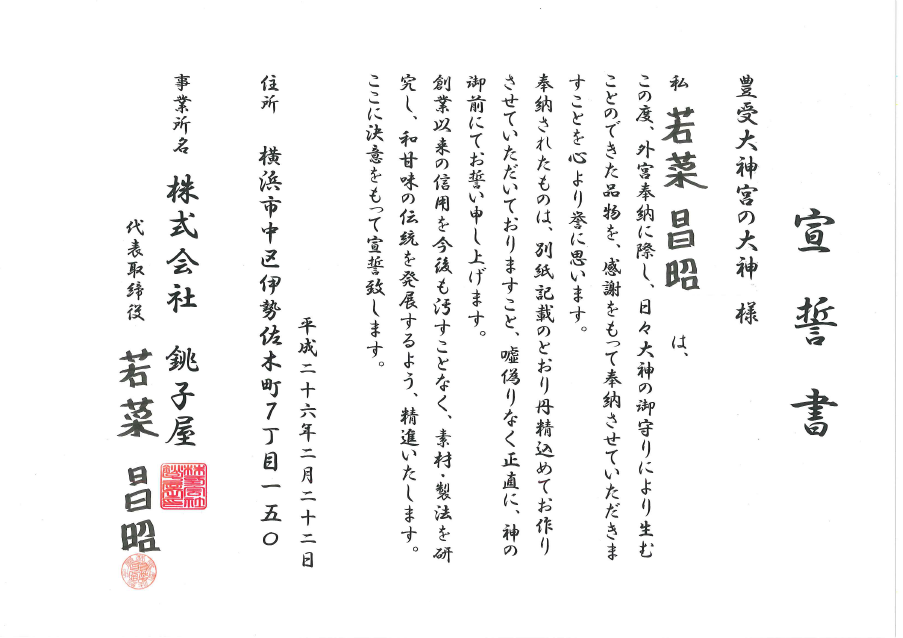 宣誓書
豊受大神宮の大神 様
私 若菜 昌昭 は、
この度、外宮奉納に際し、日々大神の御守りにより生む
ことのできた品物を、感謝をもって奉納させていただきま
すことを心より誉に思います。
奉納されたものは、別紙記載のとおり丹精込めてお作り
させていただいておりますこと、嘘偽りなく正直に、神の
御前にてお誓い申し上げます。
創業以来の信用を今後も汚すことなく、素材・製法を研
究し、和甘味の伝統を発展するよう、精進いたします。
ここに決意をもって宣誓致します。
平成二十六年二月二十二日
住所 横浜市中区伊勢佐木町7丁目一五〇
事業所名 株式会社 銚子屋
代表取締役 若菜 昌昭